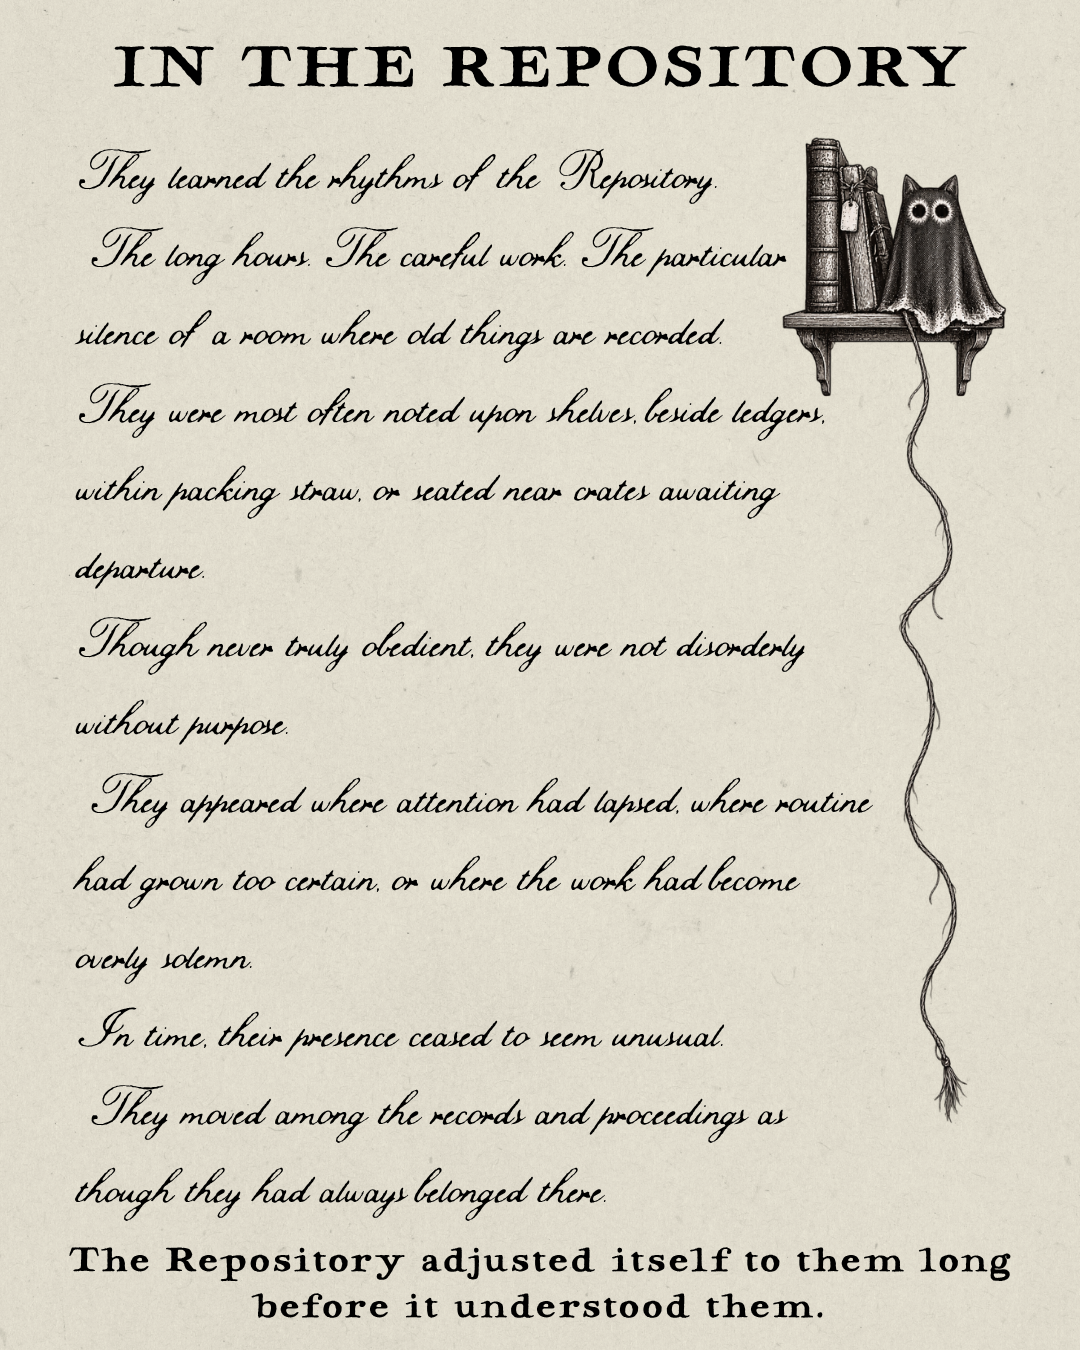 IN THE REPOSITORY
They learned the rhythms of the Repository.
The long hours. The careful work. The particular
silence of a room where old things are recorded.
They were most often noted upon shelves, beside ledgers,
within packing straw, or seated near crates awaiting
departure.
Though never truly obedient, they were not disorderly
without purpose.
They appeared where attention had lapsed, where routine
had grown too certain, or where the work had become
overly solemn.
In time, their presence ceased to seem unusual.
They moved among the records and proceedings as
though they had always belonged there.
The Repository adjusted itself to them long
before it understood them.